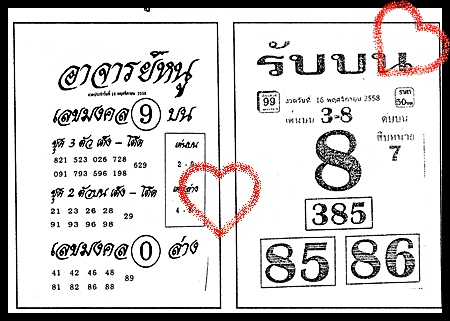 อาจารย์หนู
งวดประจำวันที่ 16 พฤศจิกายน 2558
เลขมงคล 9 บน
ชุด 3 ตัว เต็ง - โต๊ด
821 523 026 728
629
091 793 596 198
ชุด 2 ตัวบน เต็ง - โต๊ด
21 23 26 28
29
91 93 96 98
เลขมงคล 0 ล่าง
41 42 46 48
89
81 82 86 88
เด่นบน
2 - 9
4 - 8
รับบน
99
งวดวันที่ 16 พฤศจิกายน 2558
ราคา
50
เด่นบน 3-8
8
ดับบน
สิบหมาย
7
385
85
86